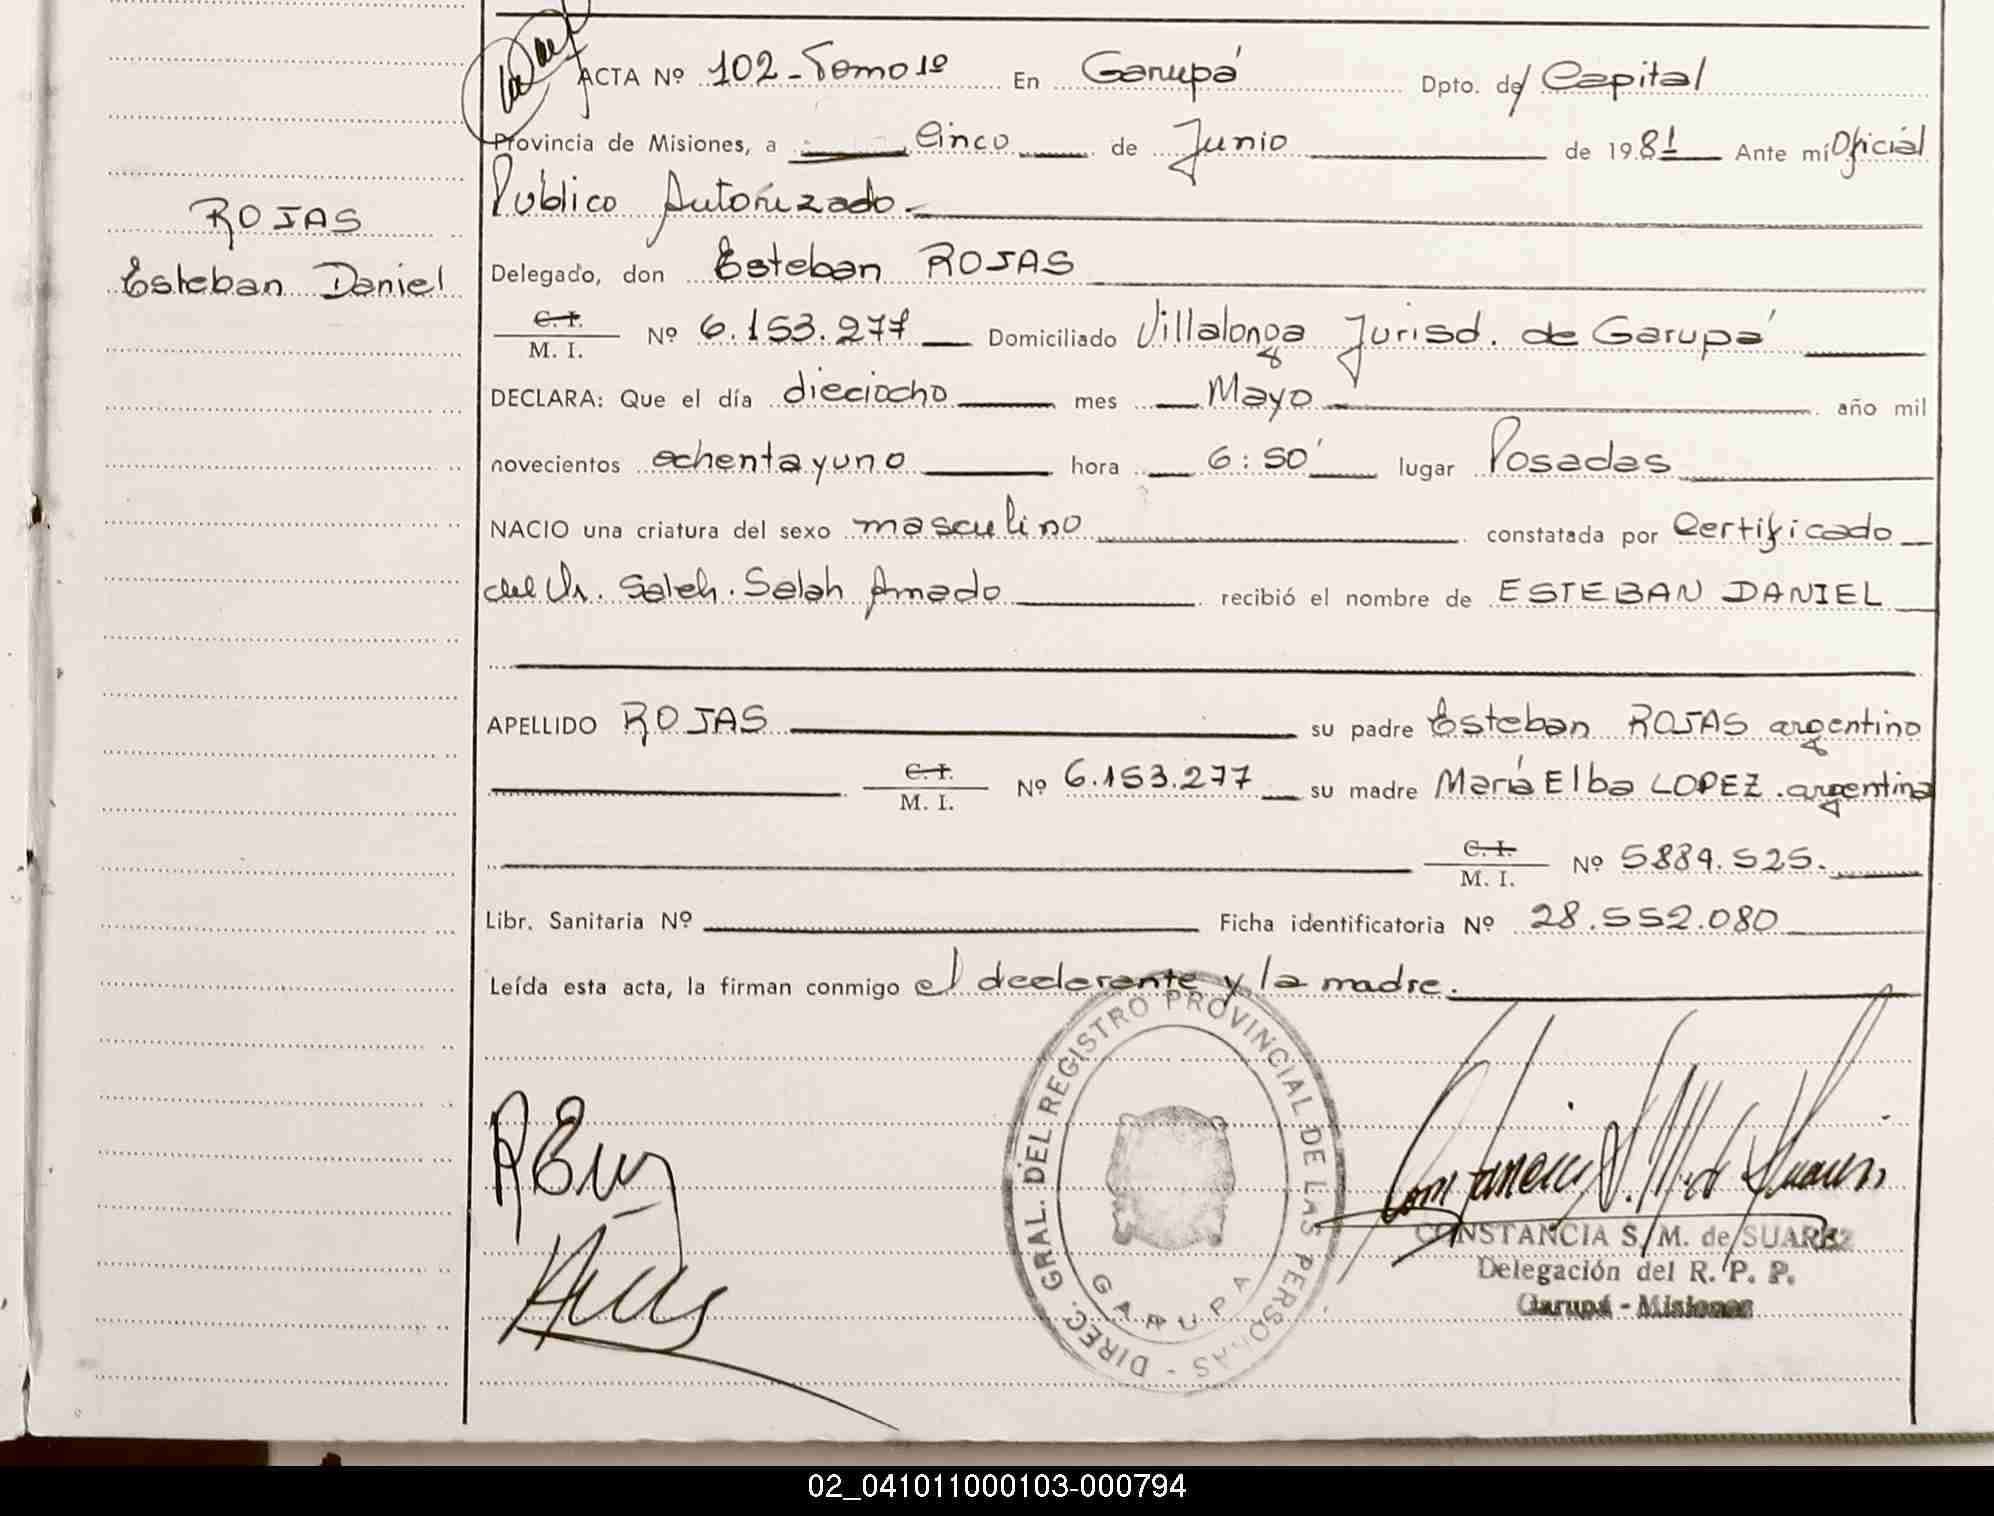 ACTA Nº 102 - Tomo 1º En Garupá Dpto. de Capital
Provincia de Misiones, a Cinco de Junio de 1981 Ante mí Oficial
Público Autorizado.-
ROJAS
Esteban Daniel
Delegado, don Esteban ROJAS
C. I.
M. I. Nº 6.153.277 Domiciliado Villalonga Jurisd. de Garupá
DECLARA: Que el día dieciocho mes Mayo año mil
novecientos ochenta y uno hora 6:50' lugar Posadas
NACIO una criatura del sexo masculino constatada por Certificado
del Dr. Saleh. Salah Amado recibió el nombre de ESTEBAN DANIEL
APELLIDO ROJAS su padre Esteban ROJAS argentino
C. I.
M. I. Nº 6.153.277 su madre María Elba LOPEZ. argentina
C. I.
M. I. Nº 5884.525.
Libr. Sanitaria Nº Ficha identificatoria Nº 28.552.080
Leída esta acta, la firman conmigo el declarante y la madre.
DIREC. GRAL. DEL REGISTRO PROVINCIAL DE LAS PERSONAS -
GARUPA
CONSTANCIA S. M. de SUAREZ
Delegación del R. P. P.
Garupá - Misiones
02_041011000103-000794